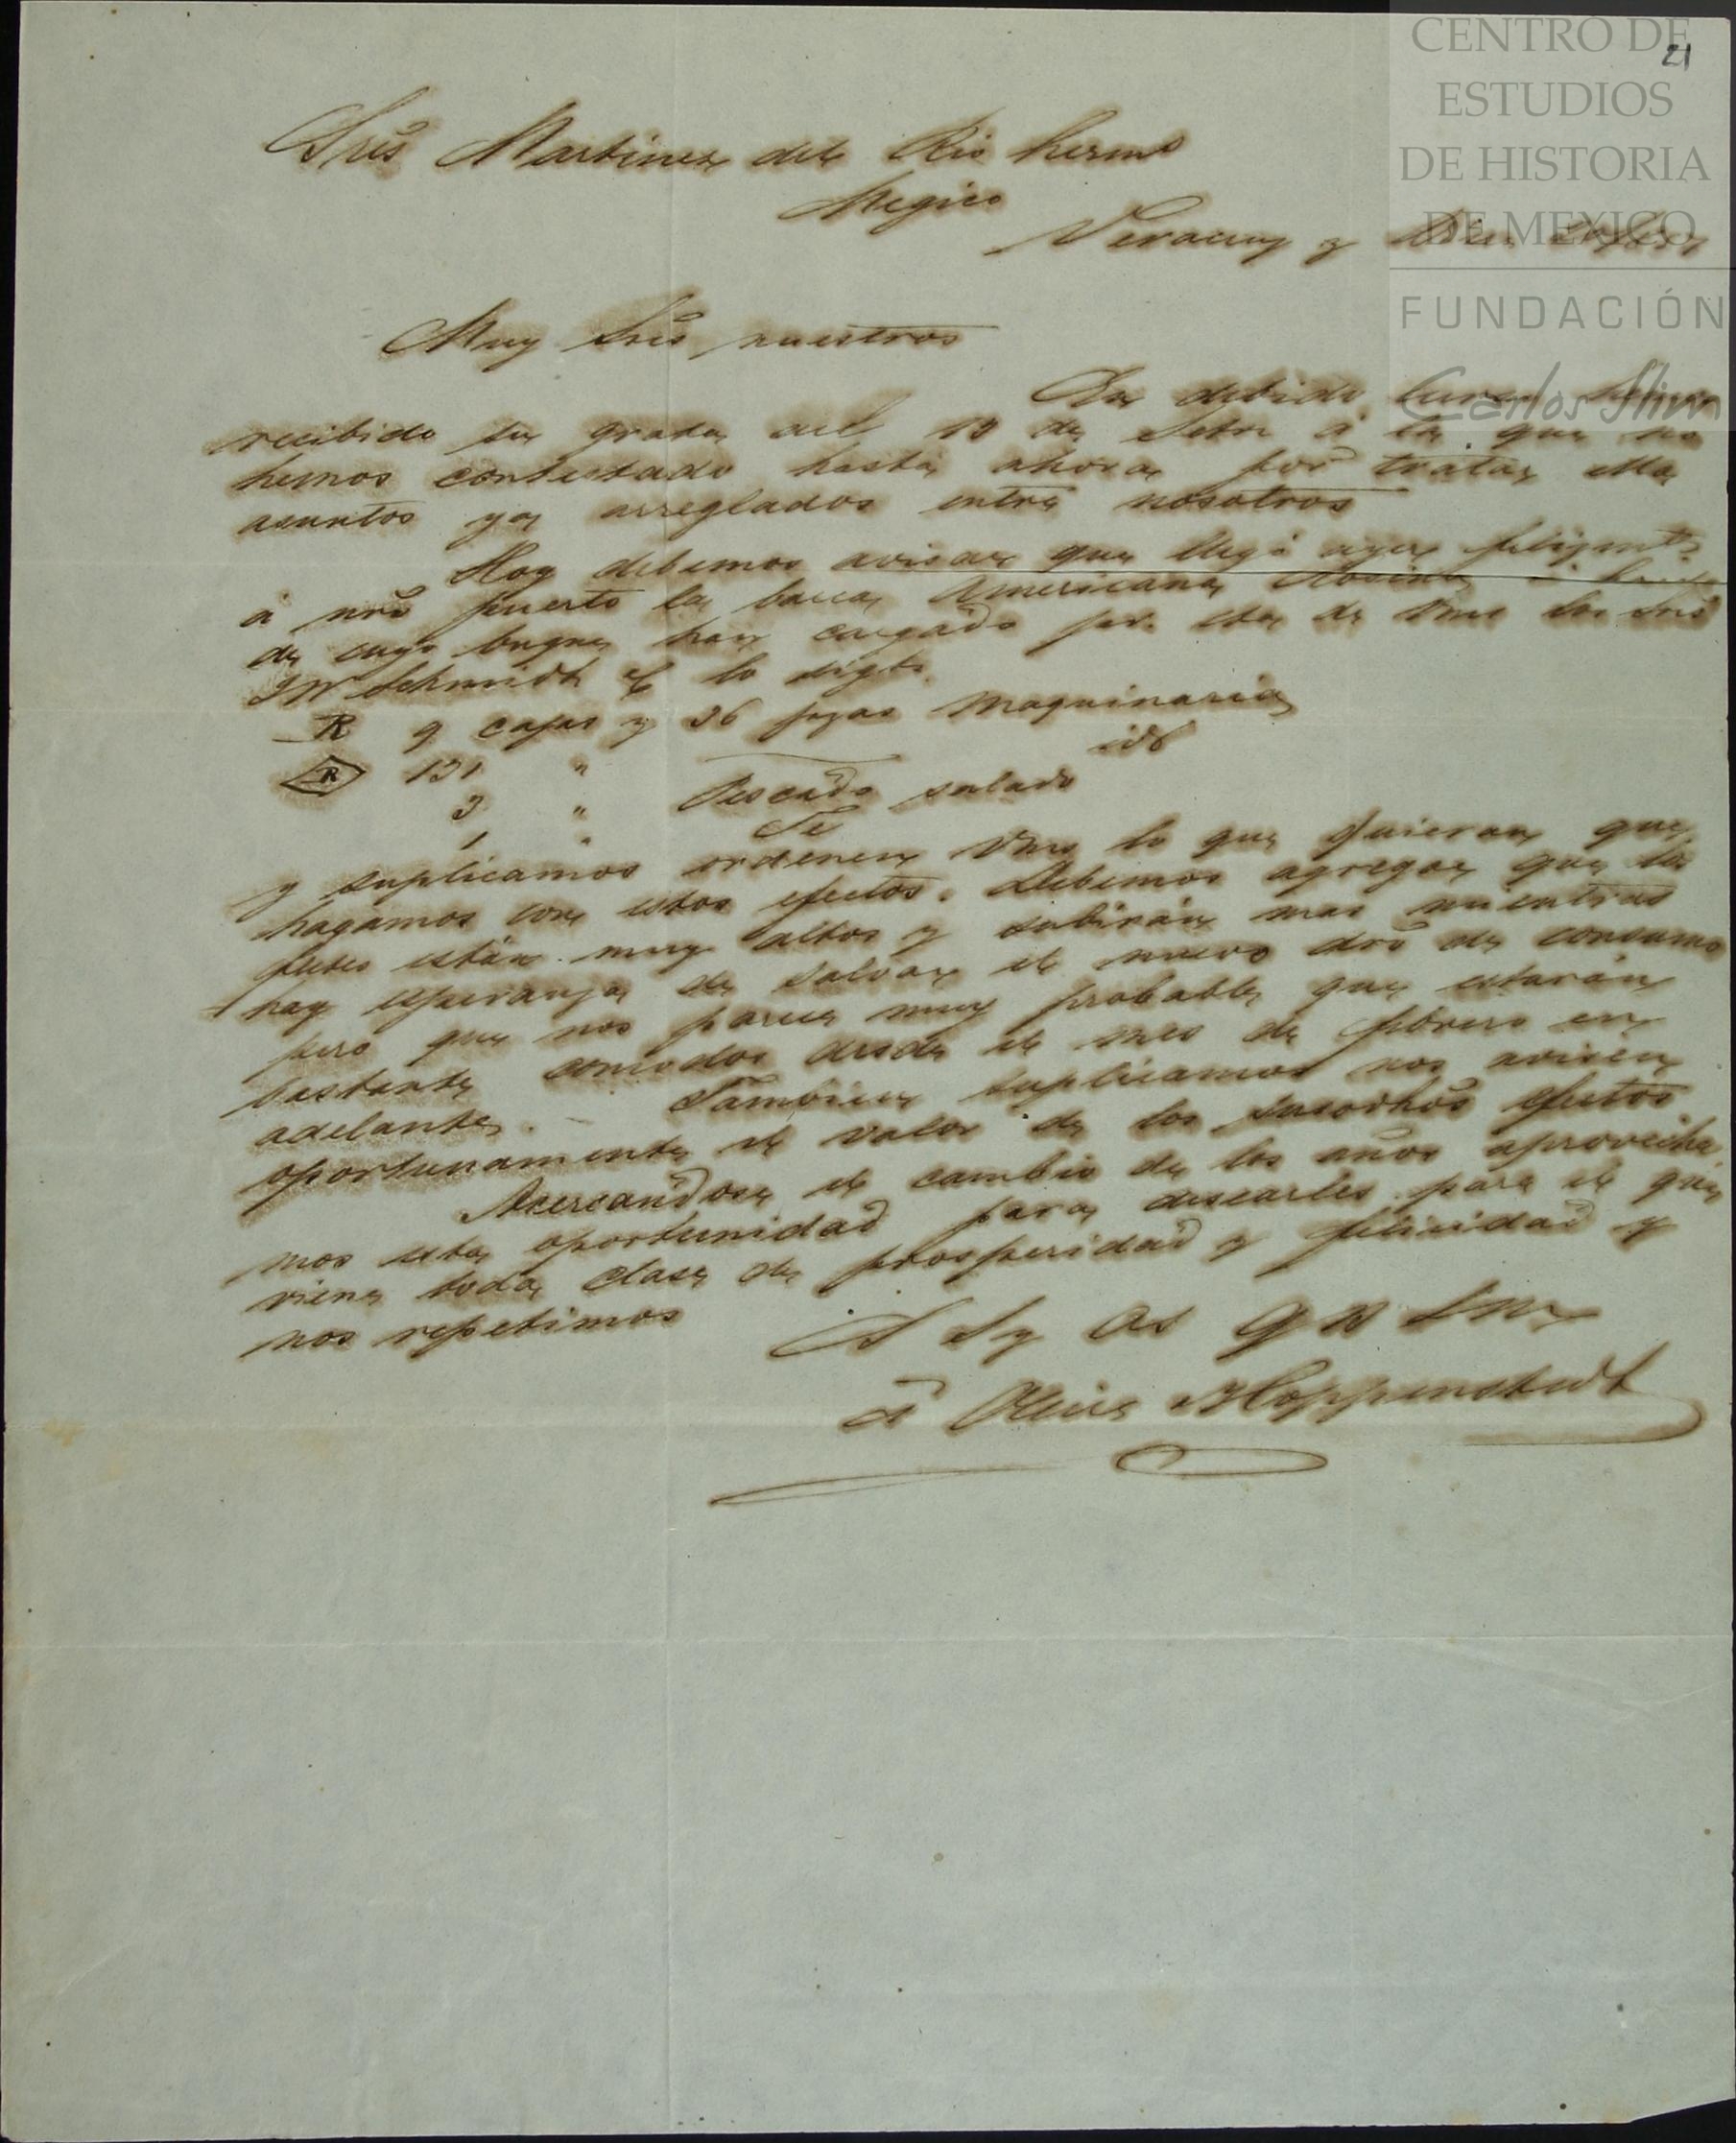 CENTRO DE
ESTUDIOS
DE HISTORIA
DE MEXICO
FUNDACIÓN
Carlos Slim
21
Sres Martinez del Rio hermos
Megico
Veracruz y
Muy Sres nuestros
Su debido hemos
recibido su grata del 13 de Setre á la que no
hemos contestado hasta ahora por tratar ella
asuntos ya arreglados entre nosotros
Hoy debemos avisar que llegó ayer felizmte
á nro puerto la barca Americana Rosina á bordo
de cuyo buque han cargado por cta de Vms los Sres
JW Schmidt & Co lo sigte
R 9 cajas y 36 piezas maquinaria
R 131 " id
3 " Pescado salado
1 " Te
y suplicamos ordenen Vms lo que quieran que
hagamos con estos efectos. Debemos agregar que los
fletes están muy altos y subirán mas mientras
hay esperanza de salvar el nuevo dro de consumo
pero que nos parece muy probable que estarán
bastante comodos desde el mes de febrero en
adelante. Tambien suplicamos nos avisen
oportunamente el valor de los susodhos efectos.
Acercandose el cambio de los años aprovecha
mos esta oportunidad para desearles para el que
viene toda clase de prosperidad y felicidad y
nos repetimos
S S y As q b s m
d Oleire Hoppenstedt